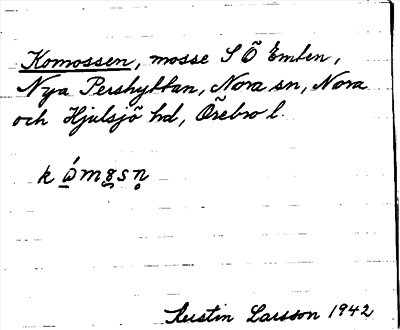 Komossen, mosse S Ö Emten,
Nya Pershyttan, Nora sn, Nora
och Hjulsjö hd, Örebro l.
Kerstin Larsson 1942